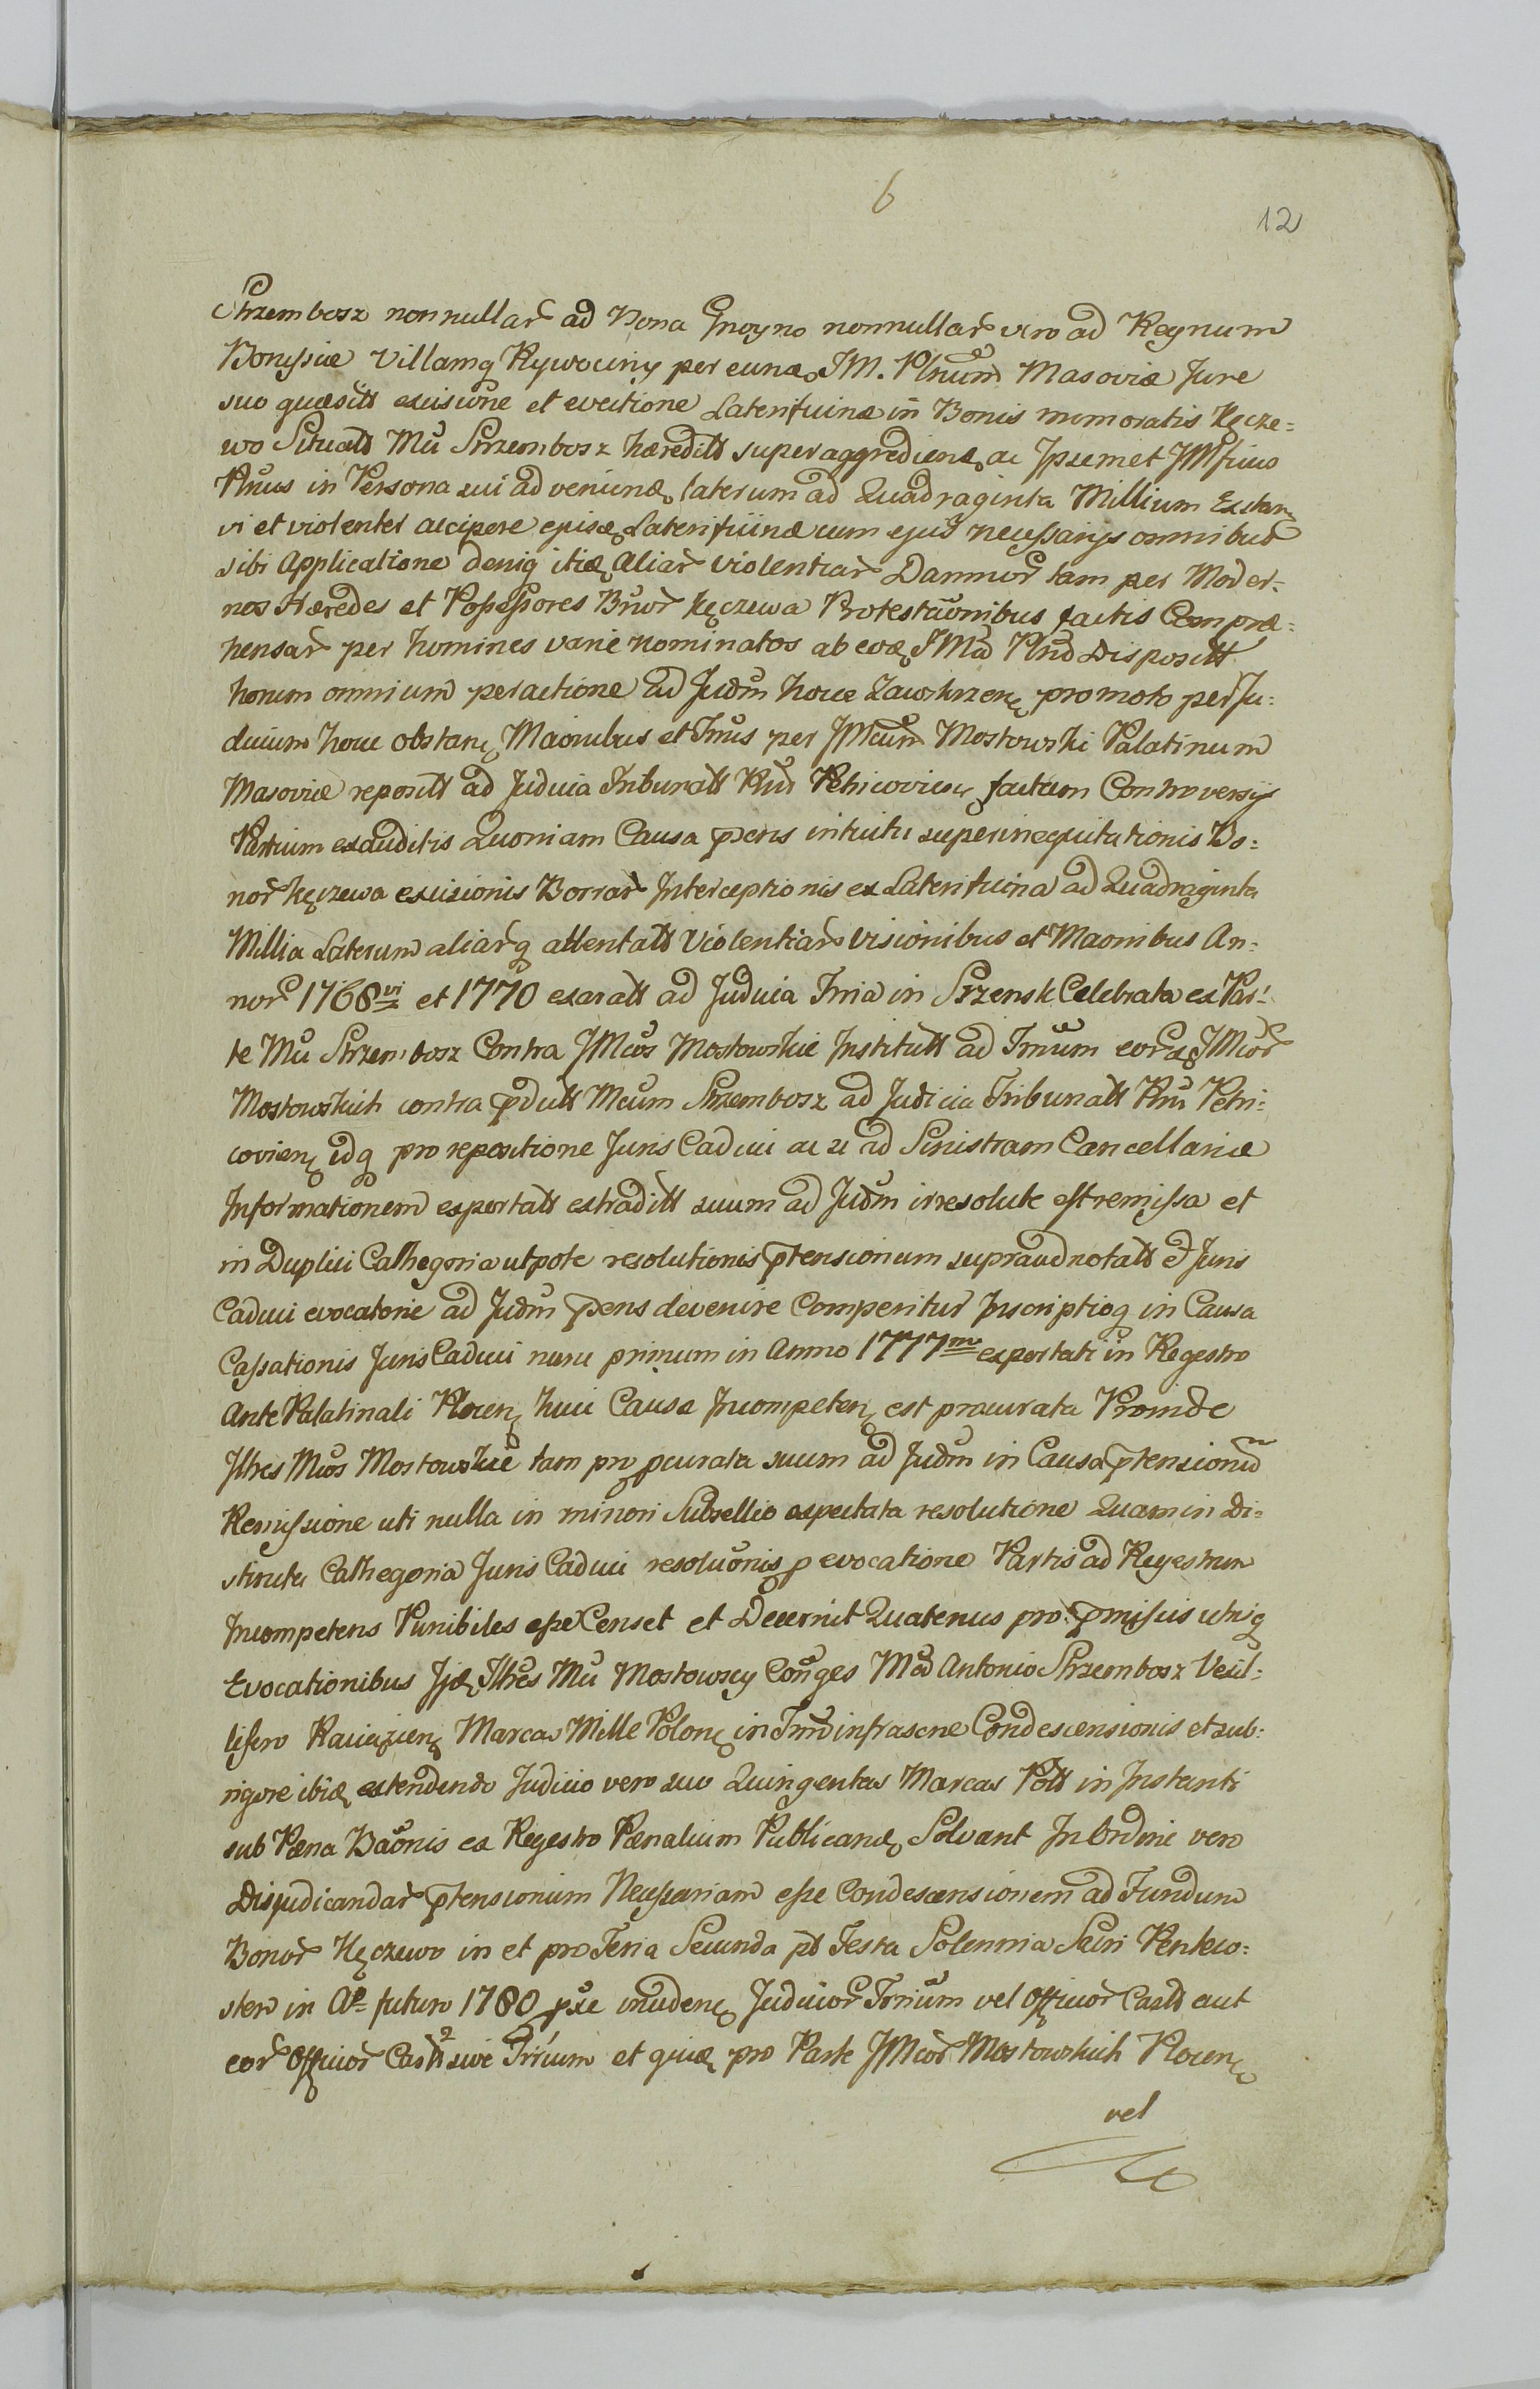 6
12
Strzembosz nonnullar ad Bona Gnoyno nonnullar vero ad Regnum
Borussiæ Villamq Rywociny per eund. JM. Plnum Masoviæ Jure
suo quæsitt excisione et evectione Laterifuinæ in Bonis memoratis Kęcze=
wo Situatt Mu Strzembosz hæreditt superaggrediend. ac Ipsemet JMficus
Plnus in Persona sui adveniend. laterum ad Quadraginta Millium Extan.
vi et violenter accipere ejusd. Laterifuinæ cum ejus necessarys omnibus
sibi Applicatione deniq itid. aliar violentiar Damnor tam per Moder=
nos Hæredes et Possessores Bnor Kęczewa Protestaonibus factis Compræ=
hensar per homines varie nominatos ab eod. JMco Plno Disposutt
horum omnium peractione ad Judm hocce Zawskrzen. promoto per Ju=
dicium hocce obstan. Maonibus et Tmis per JMcum Mostowski Palatinum
Masoviæ repositt ad Judicia Tribunatt Rni Petricovien. factum Controversys
Partium exauditis Quoniam Causa pens intuitu superinequitationis Bo=
nor Kęczewa excisionis Borrar Interceptionis ex Laterifuina ad Quadraginta
Millia Laterum aliarq attentatt Violentiar Visionibus et Maonibus An=
nor 1768vi et 1770 exaratt ad Judicia Trria in Szrensk Celebrata ex Par=
te Mu Strzembosz Contra JMcos Mostowskie Institutt ad Tmum eord. JMcor
Mostowskich contra pdutt Mcum Strzembosz ad Judicia Tribunatt Rni Petri=
covien. idq pro repositione Juris Caduci ac si ad Sinistram Cancellariæ
Informationem exportatt extraditt suum ad Judm irresolute est remissa et
in Duplici Cathegoria utpote resolutionis ptensionum supraadnotatt et Juris
Caduci evocatorie ad Judm pens devenire Comperitur Inscriptioq in Causa
Cassationis Juris Caduci nunc primum in Anno 1777mo exportati in Regestro
Ante Palatinali Plocen. huic Causæ Incompeten. est procurata Proinde
Jlltres Mcos Mostowskie tam pro pcurata suum ad Judm in Causa ptensionu
Remissione uti nulla in minori Subsellio expectata resolutione Quam in Di=
stincta Cathegoria Juris Caduci resoluonis p evocatione Partis ad Regestrum
Incompetens Punibiles esse Censet et Decernit Quatenus pro pmissis utriq
Evocationibus Jid. Jlltres Mci Mostowscy Conges Mco Antonio Strzembosz Vexil=
lifero Raciązien. Marcas Mille Polon. in Tmo infrascne Condescensionis et sub=
rigore ibid. extendendo Judicio vero suo Quingentas Marcas Poll in Instanti
sub Pæna Baonis ex Regestro Pænalium Publicand. Solvant In Ordine vero
Disjudicandar ptensionum Necessariam esse Condescensionem ad Fundum
Bonor Kęczewo in et pro Feria Secunda pt Festa Solennia Sacri Penteco=
sten in Ao futuro 1780 pxe incidend. Judicior Trrium vel Officior Castt aut
eor Officior Castt sive Trrium et quid. pro Parte JMcor Mostowskich Plocen.
vel